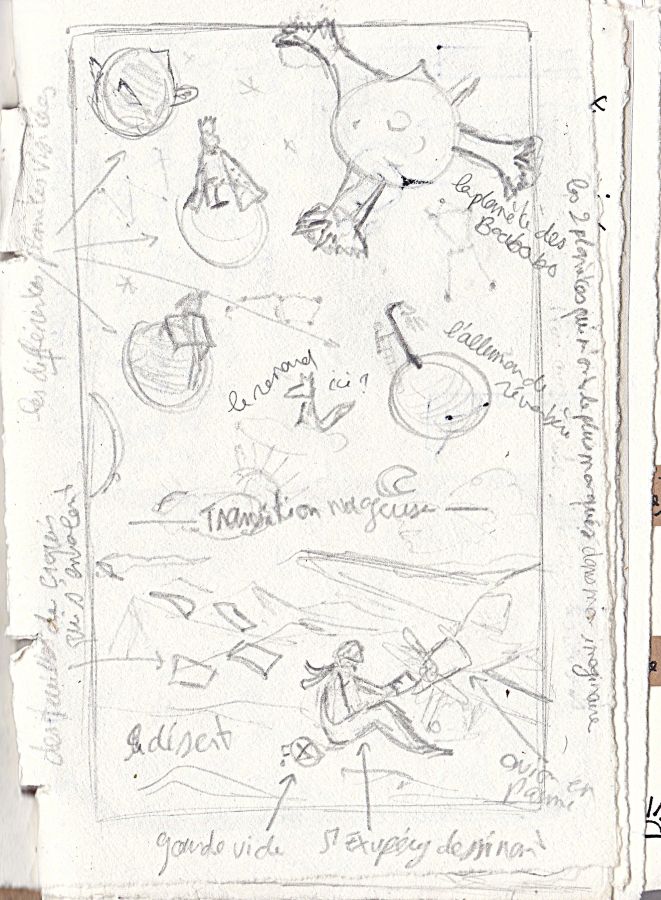 les différentes planètes visibles
la planète des
Baobabs
les 2 planètes qui m'ont le plus marquées dans mon imaginaire
l'allumeur de
réverbère
le renard ici ?
Transition nageuse
des feuilles de croquis
qui s'envolent
le désert
avion en
panne
gourde vide
St Exupéry dessinant